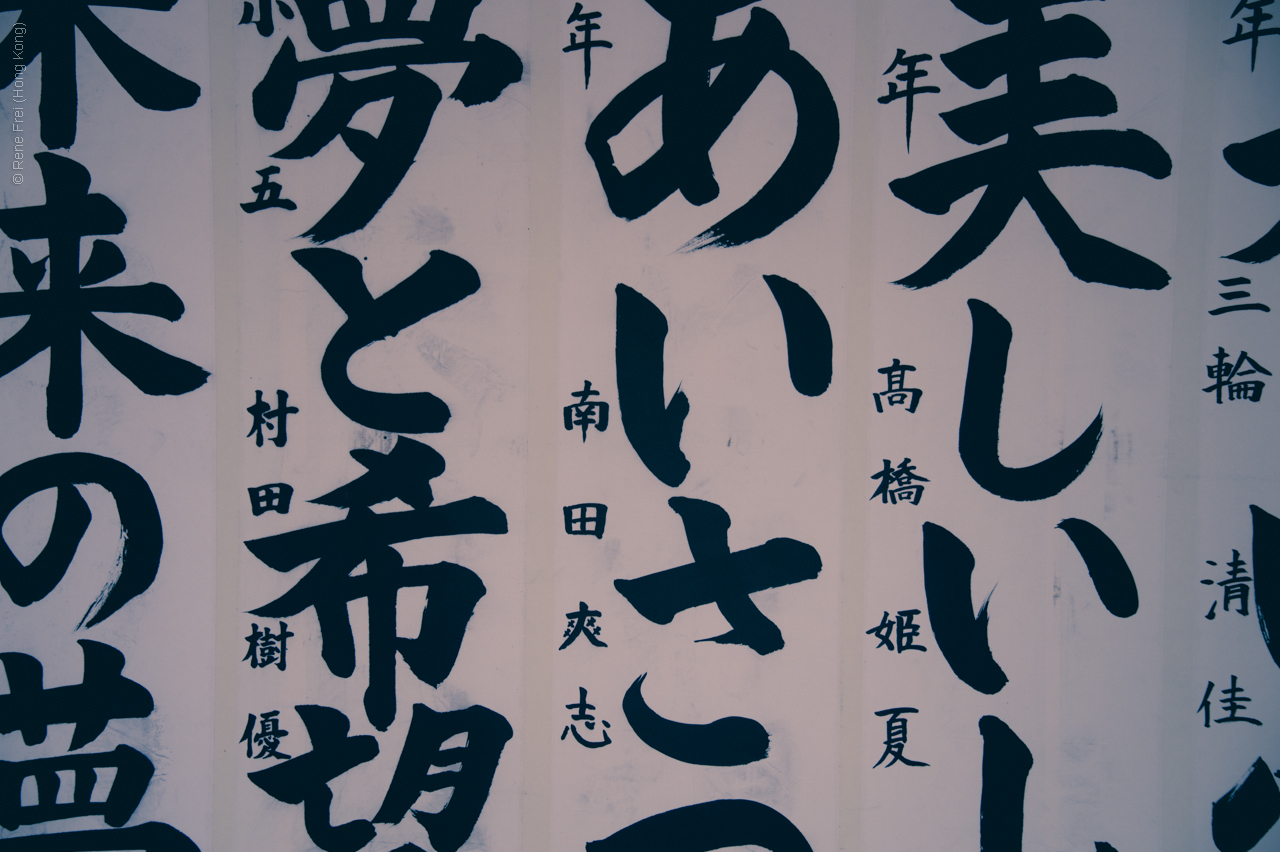 年 三輪 清佳
美しい
年 髙橋 姫夏
あいさつ
年 南田 爽志
夢と希望
小五 村田 樹優
未来の夢
© Rene Frei (Hong Kong)